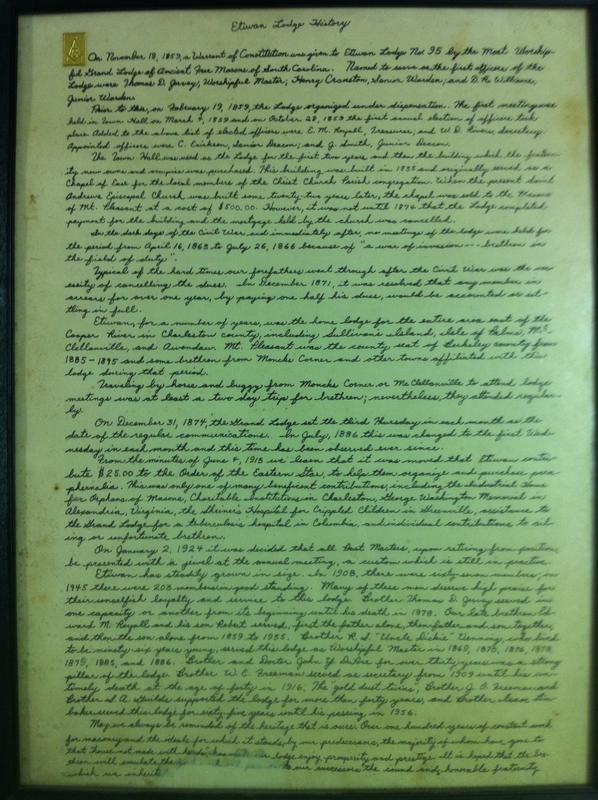 Etiwan Lodge History
On November 18, 1859, a Warrant of Constitution was given to Etiwan Lodge No. 95 by the Most Worship-
ful Grand Lodge of Ancient Free Masons of South Carolina. Named to serve as the first officers of the
Lodge were Thomas D. Jervey, Worshipful Master; Henry Cranston, Senior Warden; and D. R. Williams,
Junior Warden.
Prior to this, on February 19, 1859, the Lodge organized under dispensation. The first meeting was
held in Town Hall on March 4, 1859 and on October 28, 1859 the first annual election of officers took
place. Added to the above list of elected officers were E. M. Royall, Treasurer; and W. D. Secretary.
Appointed officers were C. Erickson, Senior Deacon; and J. Smith, Junior Deacon.
The Town Hall was used as the Lodge for the first two years and then the building which the frater-
ity now owns and occupies was purchased. This building was built in 1835 and originally served as a
Chapel of Ease for the local members of the Christ Church Parish congregation. When the present Saint
Andrews Episcopal Church was built some twenty-two years later, the chapel was sold to the Masons
of Mt. Pleasant at a cost of $800.00. However, it was not until 1874 that the Lodge completed
payment for the building and the mortgage held by the church was cancelled.
In the dark days of the Civil War and immediately after, no meetings of the lodge were held for
the period from April 16, 1863 to July 26, 1866 because of "a war of invasion --- brethren in
the field of duty".
Typical of the hard times our forefathers went through after the Civil War was the nec-
essity of cancelling the dues. In December 1871, it was resolved that any member in
arrears for over one year, by paying one half his dues, would be accounted as set-
tling in full.
Etiwan, for a number of years, was the home lodge for the entire area east of the
Cooper River in Charleston County, including Sullivans Island, Isle of Palms, Mc-
Clellanville, and Awendaw. Mt. Pleasant was the county seat of Berkeley County from
1885-1895 and some brethren from Moncks Corner and other towns affiliated with this
lodge during that period.
Traveling by horse and buggy from Moncks Corner or McClellanville to attend lodge
meetings was at least a two day trip for brethren; nevertheless, they attended regular-
ly.
On December 31, 1874, the Grand Lodge set the third Thursday in each month as the
date of the regular communications. In July, 1886 this was changed to the first Wed-
nesday in each month and this time has been observed ever since.
From the minutes of June 4, 1913 we learn that it was moved that Etiwan contri-
bute $25.00 to the Order of the Eastern Star, to help them organize and purchase para-
phernalia. This was only one of many beneficent contributions, including the Industrial Home
for Orphans of Masons, Charitable Institutions in Charleston, George Washington Memorial in
Alexandria, Virginia, the Shriner's Hospital for Crippled Children in Greenville, assistance to
the Grand Lodge for a tuberculosis hospital in Columbia, and individual contributions to ail-
ing or unfortunate brethren.
On January 2, 1924 it was decided that all Past Masters, upon retiring from position,
be presented with a jewel at the annual meeting, a custom which is still in practice.
Etiwan has steadily grown in size. In 1908, there were sixty seven members; in
1945 there were 208 members in good standing. Many of these men deserve high praise for
their unselfish loyalty and service to this lodge. Brother Thomas D. Jervey served in
one capacity or another from its beginning until his death in 1878. Our late brethren Ed-
ward M. Royall and his son Robert, served, first the father alone, then father and son together,
and then the son alone from 1859 to 1935. Brother R. S. "Uncle Dickie" Venning, who lived
to be ninety six years young, served this lodge as Worshipful Master in 1869, 1875, 1876, 1878,
1879, 1885, and 1886. Brother and Doctor John Y. DuPre for over thirty years was a strong
pillar of the lodge. Brother W. E. Freeman served as secretary from 1909 until his un-
timely death at the age of forty in 1916. The gold dust twins, Brother J. O. Freeman and
Brother supported the lodge for more than forty years, and Brother
served this lodge for sixty five years until his passing in 1956.
May we always be reminded of the heritage that is ours. Over one hundred years of constant work
for masonry and the ideals for which it stands, by our predecessors, the majority of whom have gone to
that "house not made with hands," our lodge enjoy prosperity and prestige. It is hoped that the bre-
thren will emulate the to our successors the sound and honorable fraternity
which we inherit